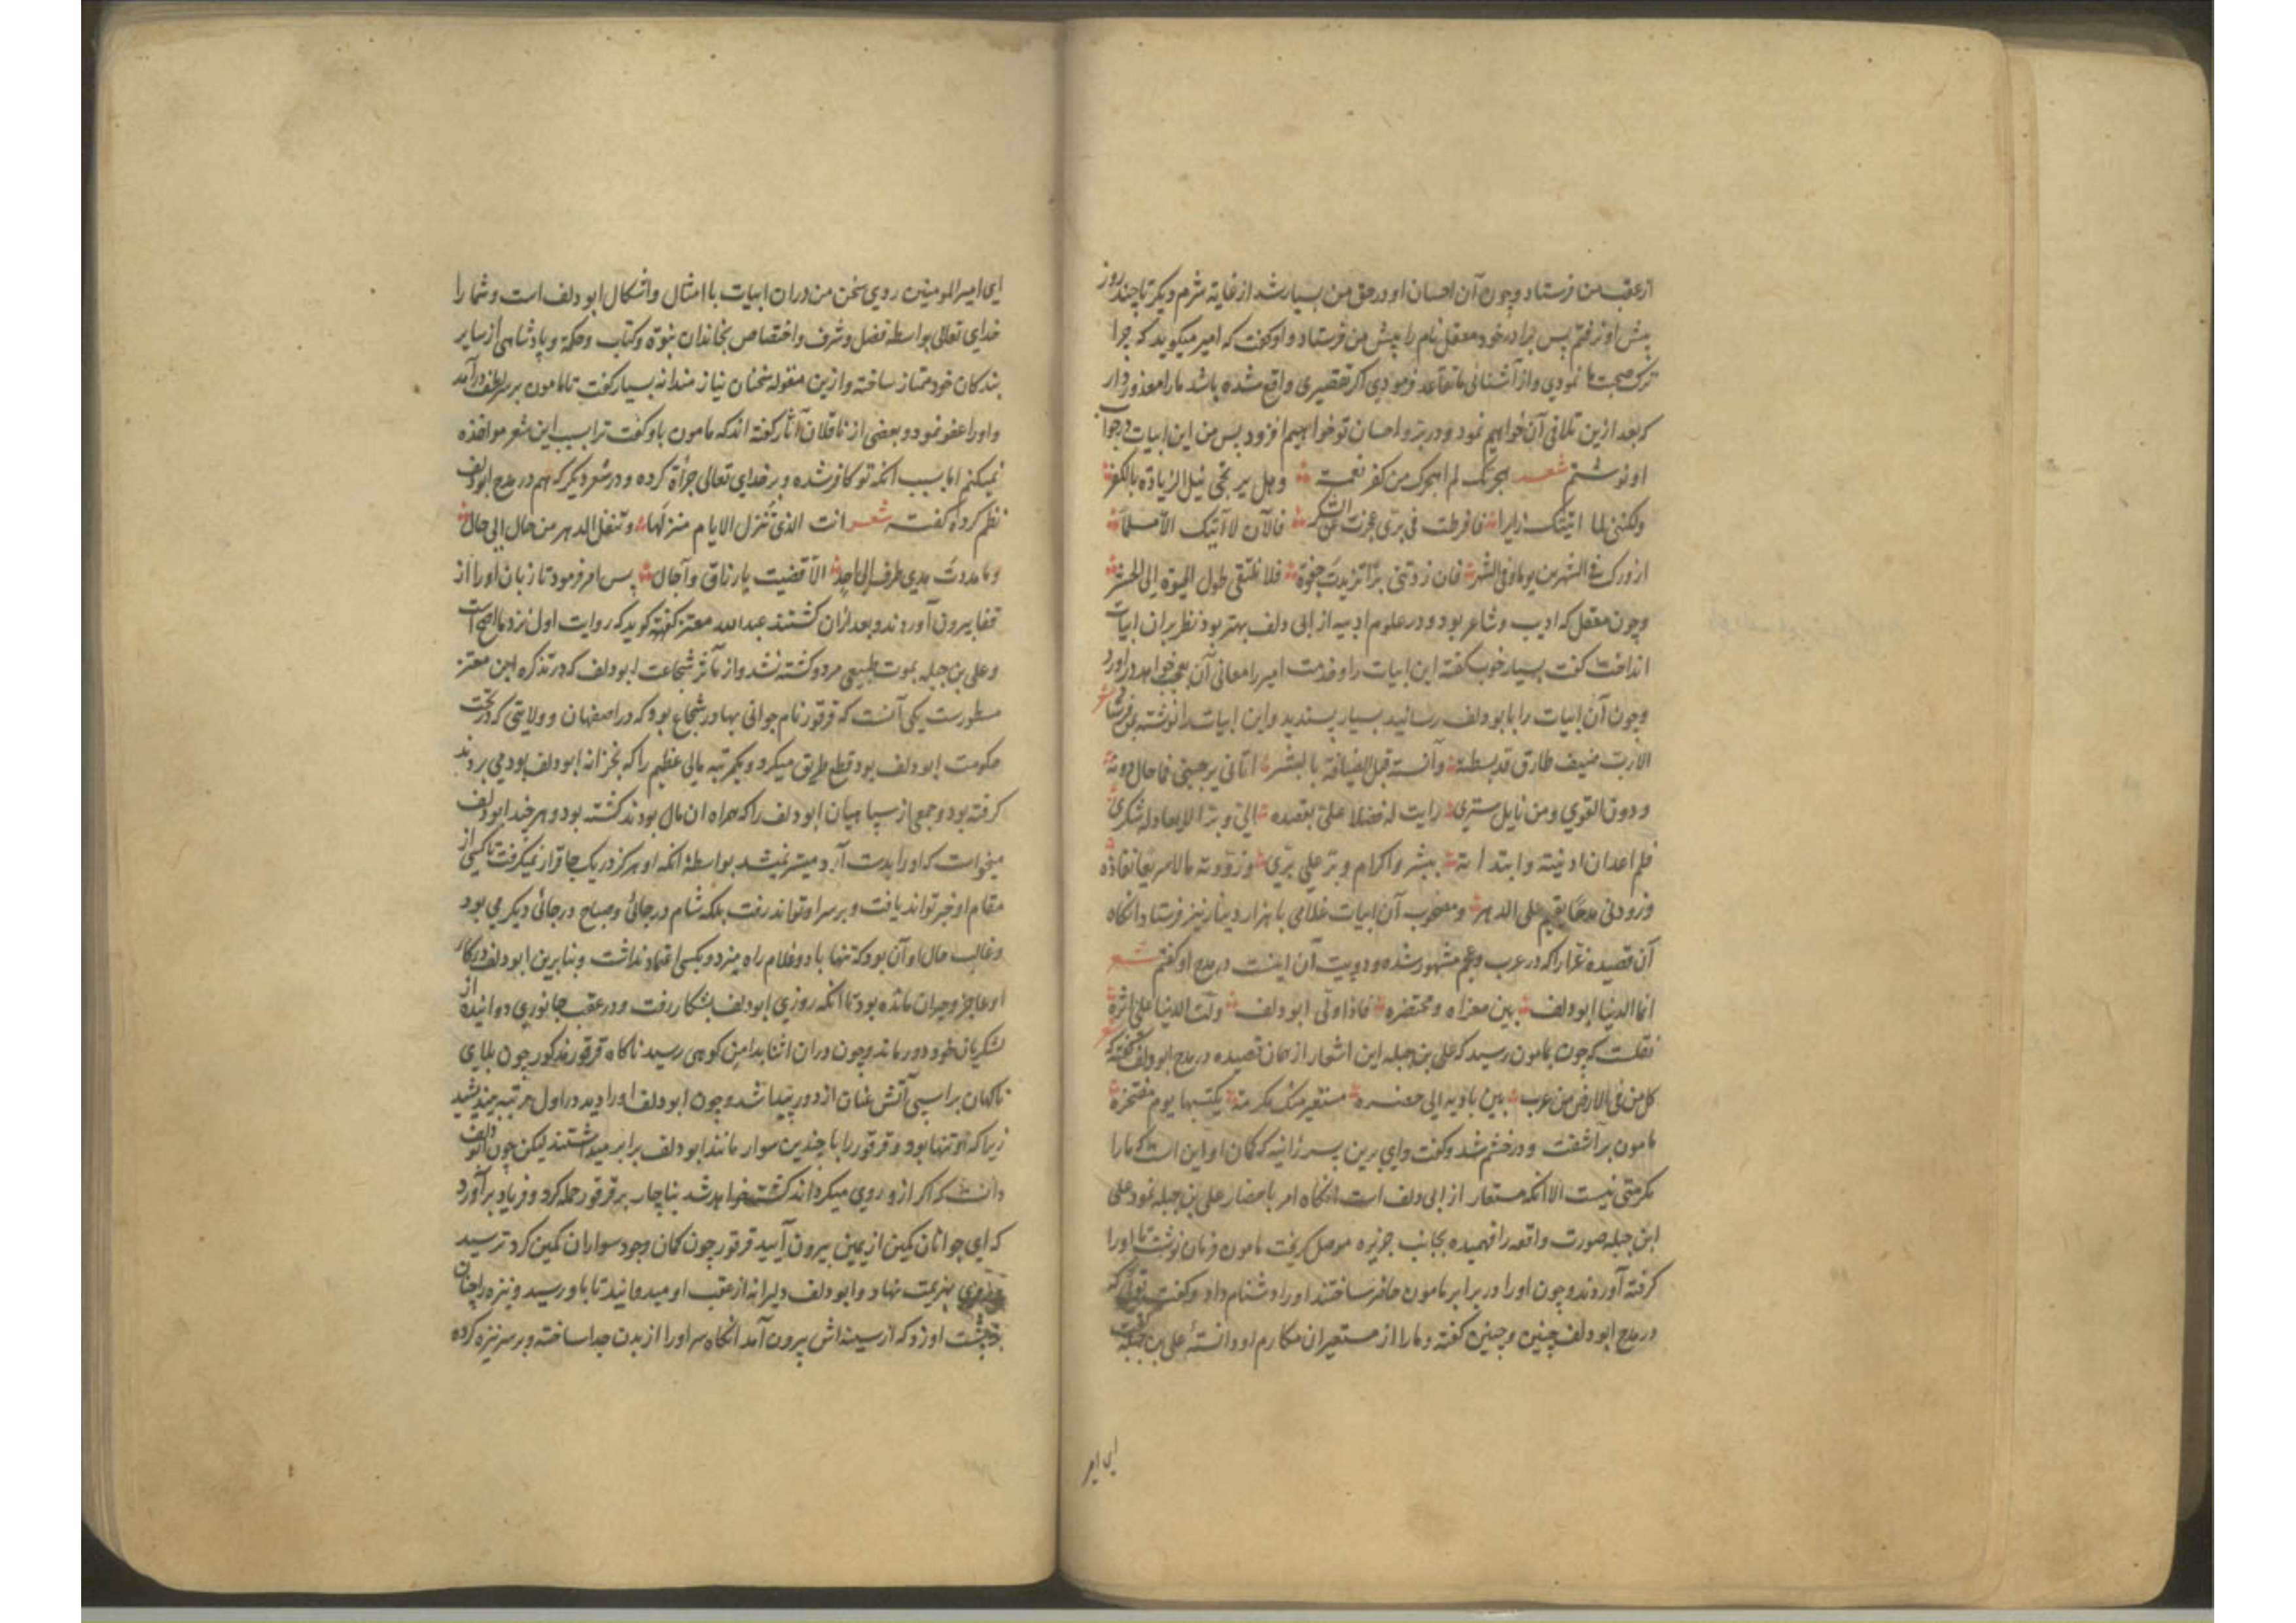 ازعقب من فرستاد و چون آن احسان او در حق من بسیار شد از غایة شرم دیگر تا چند روز
پیش او نرفتم پس برادر خود معقل نام را پیش من فرستاد و او گفت که امیر میگوید که چرا
ترک صحبت ما نمودی و از آشنائی ما تقاعد فرمودی اگر تقصیری واقع شده باشد ما را معذور دار
که بعد ازین تلافی آن خواهیم نمود و در بر و احسان تو خواهیم افزود پس من این ابیات در جواب
او نوشتم شعر هجرتک لم اهجرک من کفر نعمة وهل یرتجی نیل الزیادة بالکفر
ولکننی لما اتیتک زایرا فافرطت فی بری عجزت عن الشکر فالآن لا آتیک الا مسلما
ازورک فی الشهرین یوما وفی الشهر فان زدتنی برا تزیدت جفوة فلا نلتقی طول الحیوة الی الحشر
و چون معقل که ادیب و شاعر بود و در علوم ادبیه از ابی دلف بهتر بود نظر بران ابیات
انداخت گفت بسیار خوب گفته این ابیات را و خدمت امیر را معانی آن بعجب خواهد در آورد
و چون آن ابیات را بابو دلف رسانید بسیار پسندید و این ابیات را نوشته بمن فرستاد شعر
الا رب ضیف طارق قد بسطته وآنسته قبل الضیافة بالبشر اتانی یرجینی فما حال دونه
ودون القری ومن نایل ستری رایت له فضلا علی بقصده الی وبرا لا یعادله شکری
فلم اعد ان ادنیته وابتدأته ببشر واکرام وبر علی بری وزودته مالا سریعا نفاذه
وزودنی مدحا یقیم علی الدهر و مصحوب آن ابیات غلامی با هزار دینار نیز فرستاد انگاه
آن قصیده غرا را که در عرب و عجم مشهور شده و دو بیت آن اینست در مدح او گفتم شعر
انما الدنیا ابو دلف بین مغزاه ومحتضره فاذا ولی ابو دلف ولت الدنیا علی اثره
نقلست که چون بمامون رسید که علی بن جبله این اشعار از همان قصیده در مدح ابو دلف گفته که شعر
کل من فی الارض من عرب بین بادیه الی حضره مستعیر منک مکرمة یکتسبها یوم مفتخره
مامون برآشفت و در خشم شد و گفت وای برین پسر زانیه که گمان او این است که ما را
مکرمتی نیست الا انکه مستعار از ابی دلف است انگاه امر باحضار علی بن جبله نمود علی
ابن جبله صورت واقعه را فهمیده بجانب جزیره موصل گریخت مامون فرمان نوشت تا او را
گرفته آوردند و چون او را در برابر مامون حاضر ساختند او را دشنام داد و گفت توئی که
در مدح ابو دلف چنین و چنین گفته و ما را از مستعیران مکارم او دانستهٔ علی بن جبله گفت
ای امیر
ای امیر المومنین روی سخن من دران ابیات با امثال و اشکال ابو دلف است و شما را
خدای تعالی بواسطه فضل و شرف و اختصاص بخاندان نبوة و کتاب و حکمة و پادشاهی از سایر
بندکان خود ممتاز ساخته و ازین مقوله سخنان نیازمندانه بسیار گفت تا مامون بر سر لطف در آمد
و او را عفو نمود و بعضی از ناقلان آثار گفته اند که مامون باو گفت ترا بسبب این شعر مواخذه
نمیکنم اما بسبب انکه تو کافر شده و بر خدای تعالی جرأة کرده و در شعر دیگر که هم در مدح ابو دلف
نظم کرده گفته شعر انت الذی تنزل الایام منزلها وتنقل الدهر من حال الی حال
وما مددت مدی طرف الی احد الا قضیت بارزاق وآجال پس امر فرمود تا زبان او را از
قفا بیرون آوردند و بعد ازان کشتند عبد الله معتز گفته گوید که روایت اول نزد ما اصح است
و علی بن جبله بموت طبیعی مرد و کشته نشد و از مآثر شجاعت ابو دلف که در تذکره ابن معتز
مسطورست یکی آنست که قرقور نام جوانی بهادر شجاع بود که در اصفهان و ولایتی که در تحت
حکومت ابو دلف بود قطع طریق میکرد و یکمرتبه مالی عظیم را که بخزانه ابو دلف بود می بردند
گرفته بود و جمعی از سپاهیان ابو دلف را که همراه ان مال بودند کشته بود و هر چند ابو دلف
میخواست که او را بدست آرد میسر نمیشد بواسطه انکه او هرگز در یک جا قرار نمیگرفت تا کسی از
مقام او خبر تواند یافت و بر سر او تواند رفت بلکه شام در جائی و صباح در جائی دیگر می بود
و غالب حال او آن بود که تنها با دو غلام راه میزد و بکسی اعتماد نداشت و بنابرین ابو دلف در کار
او عاجز و حیران مانده بود تا انکه روزی ابو دلف بشکار رفت و در عقب جانوری دوانیده از
لشکریان خود دور ماند و چون دران اثنا بدامن کوهی رسید ناگاه قرقور مذکور چون بلای
ناگهان بر اسپی آتش عنان از دور پیدا شد و چون ابو دلف او را دید در اول مرتبه بیندیشید
زیرا که او تنها بود و قرقور را با چندین سوار مانند ابو دلف برابر میداشتند لیکن چون ابو دلف
دانست که اگر ازو روی میگرداند کشته خواهد شد بناچار بر قرقور حمله کرد و فریاد برآورد
که ای جوانان کمین از یمین بیرون آیید قرقور چون گمان وجود سواران کمین کرد ترسید
و روی بهزیمت نهاد و ابو دلف دلیرانه از عقب او میدوانید تا باو رسید و نیزه را چنان
بر پشت او زد که از سینه اش بیرون آمد انگاه سر او را از بدن جدا ساخته و بر سر نیزه کرده